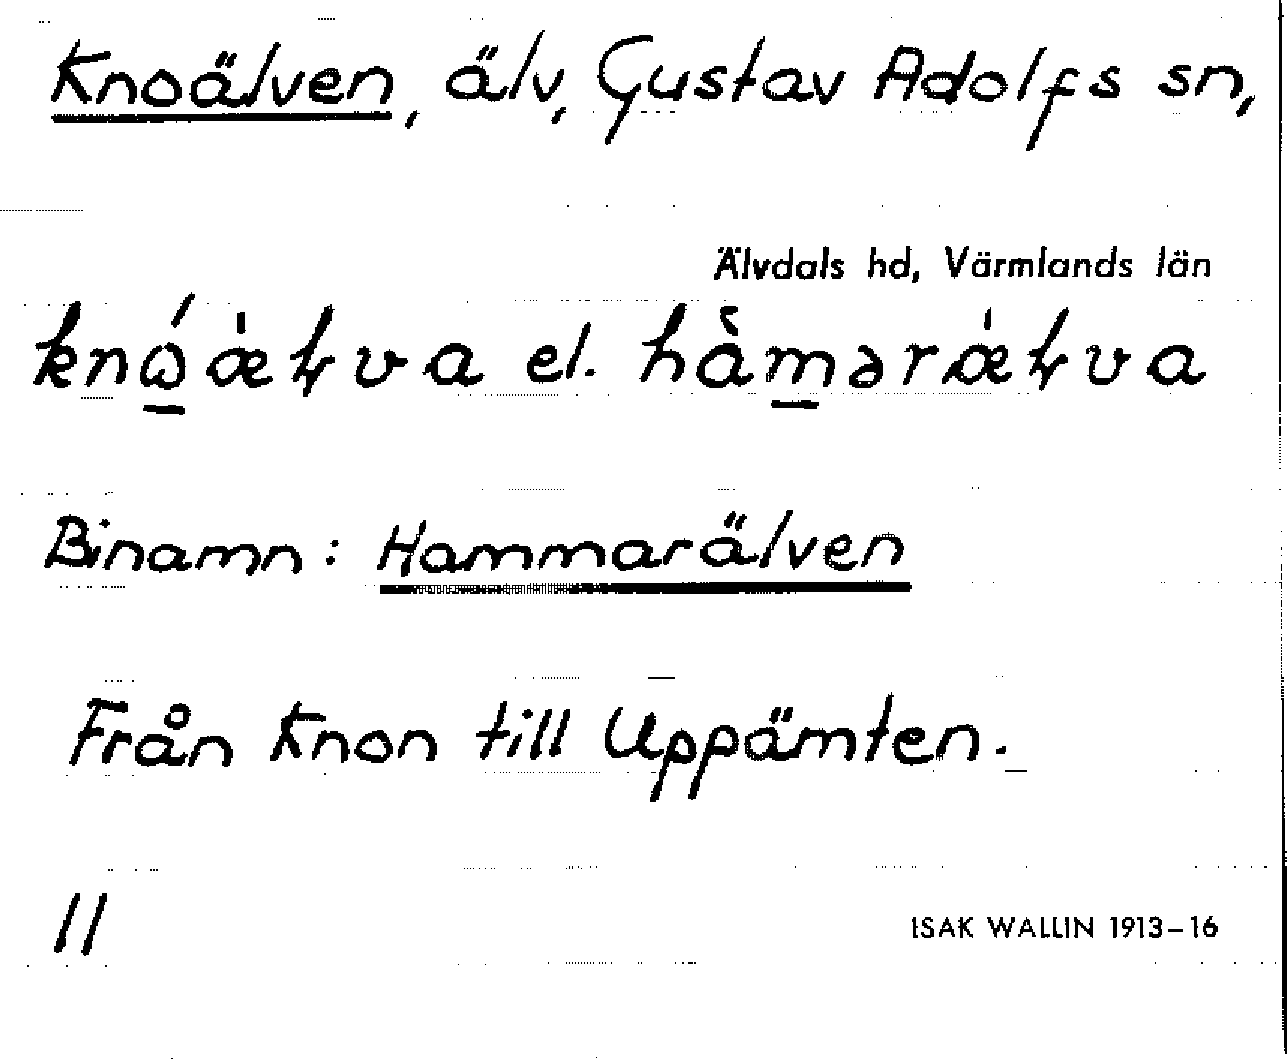 Knoälven, älv, Gustav Adolfs sn,
Älvdals hd, Värmlands län
el.
Binamn: Hammarälven
Från Knon till Uppämten.
11
ISAK WALLIN 1913–16